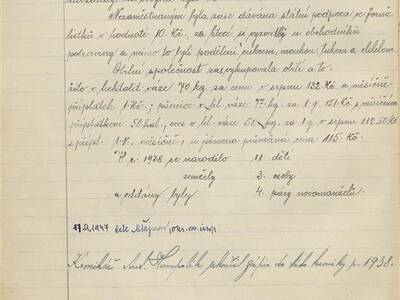 Nezaměstnaným byla zase dávána státní podpora ve formě
lístků v hodnotě 10 Kč, za které si vyzvedli u obchodníků
potraviny a mimo to byli poděleni cukrem, moukou, tukem a chlebem.
Obilní společnost zase vykupovala obilí a to:
žito v hektolit. váze 70 kg. za cenu v srpnu 132 Kč a měsíčně
příplatek 1 Kč.; pšenice v hl. váze 77 kg. za 1 q. 151 Kč s měsíčním
příplatkem 50 hal., oves v hl. váze 50 kg. za 1 q. v srpnu 112.50 Kč
s přípl. 1 Kč. měsíčně, u ječmena průměrná cena 115 Kč.
V r. 1938 se narodilo 11 dětí
zemřely 3. osoby
a oddány byly 4. páry novomanželů.
1947 čte
Kronikář Ant. skončil zápis do této kroniky r. 1938.